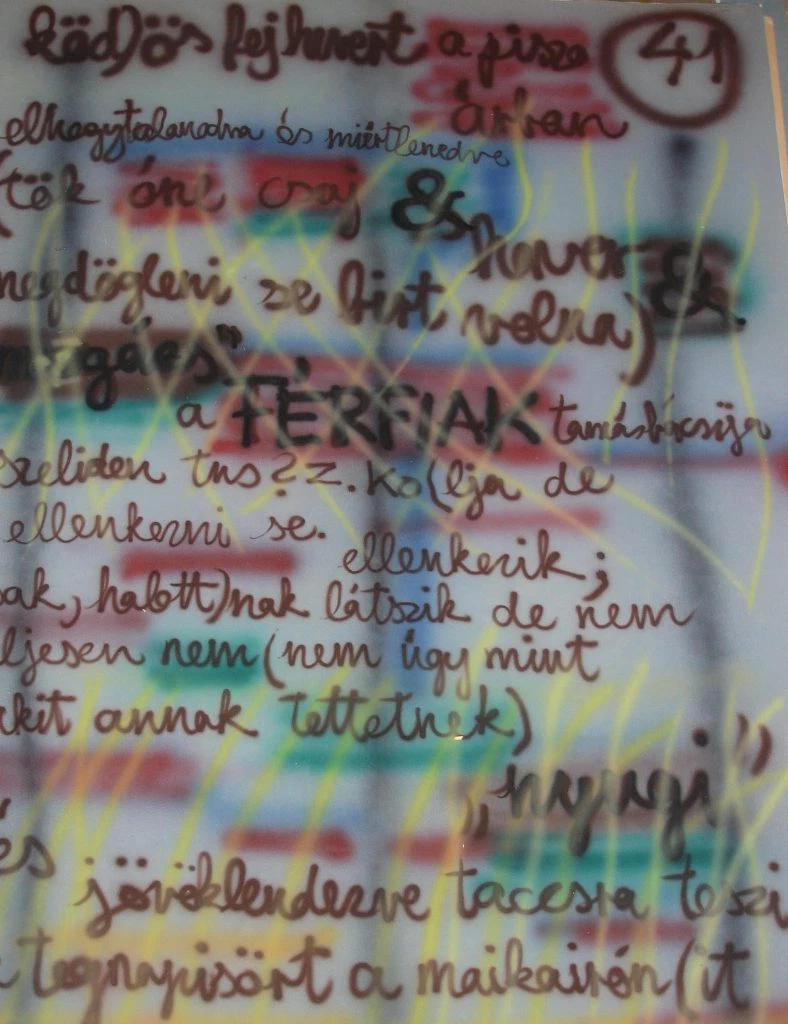 köd)ös fejhevert a pisze 41
árban
elhagytalanodva és miértlenedve
(tök óne csaj &
hever &.
megdögleni se birt volna)
mogács"
a FÉRFIAK tamásbácsija
szeliden tus?z.ko(lja de
ellenkezni se.
ellenkezik;
sak, halott)nak látszik de nem
ljesen nem (nem úgy mint
rkit annak tettetnek)
„nyugi”
és jövöklendezve taccsra teszi
a tegnapisört a maikairón (it